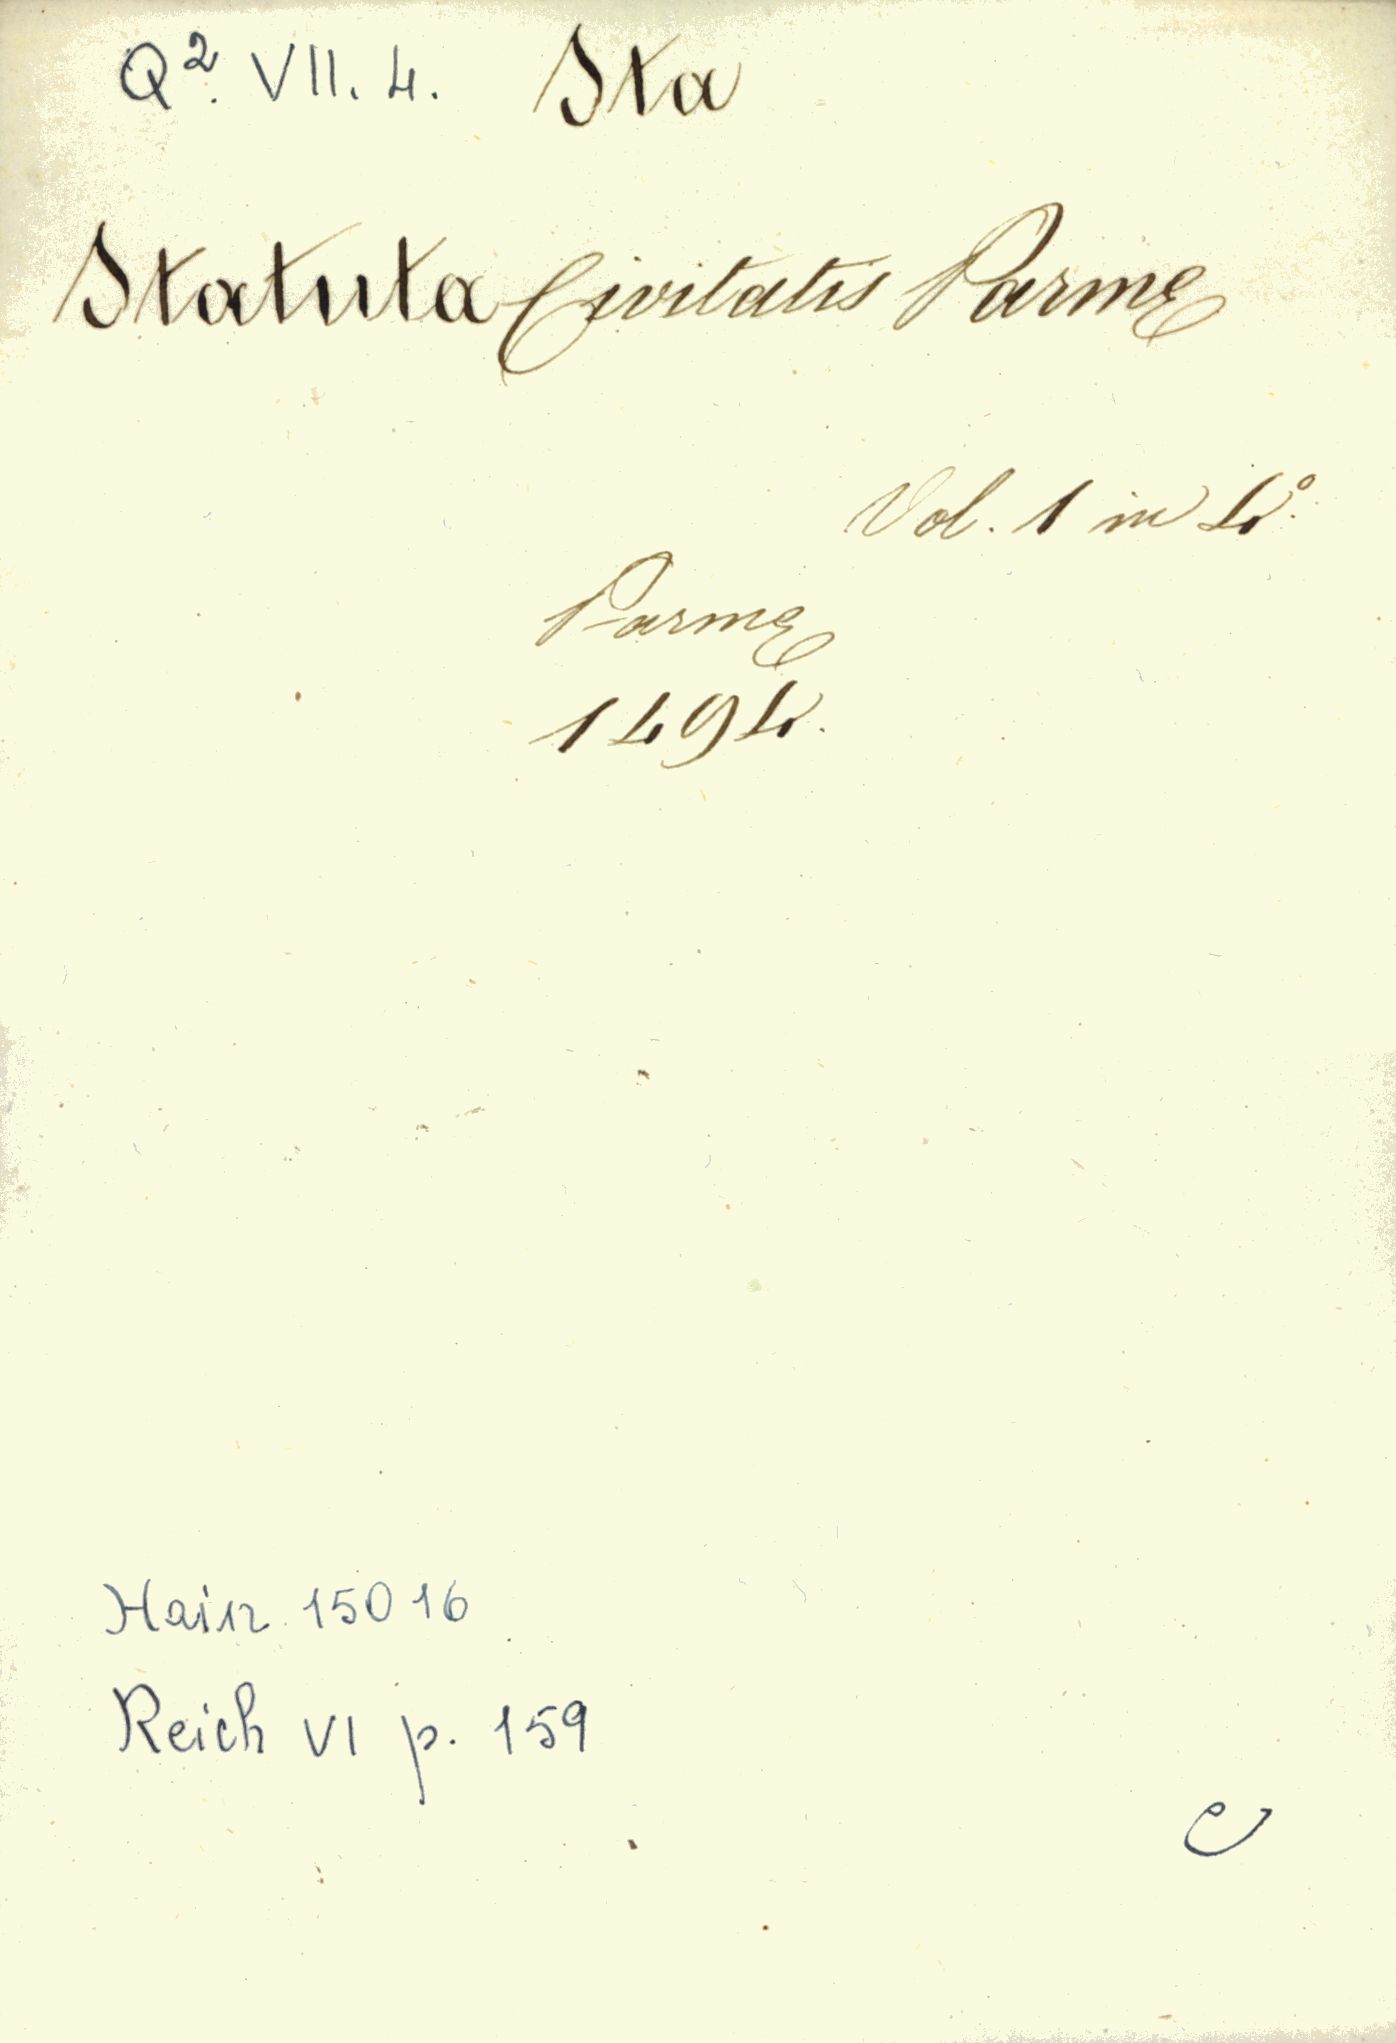 Q². VII. 4. Sta
Statuta Civitatis Parmę
Vol. 1 in 4°.
Parmę
1494.
Hain 15016
Reich VI p. 159
C